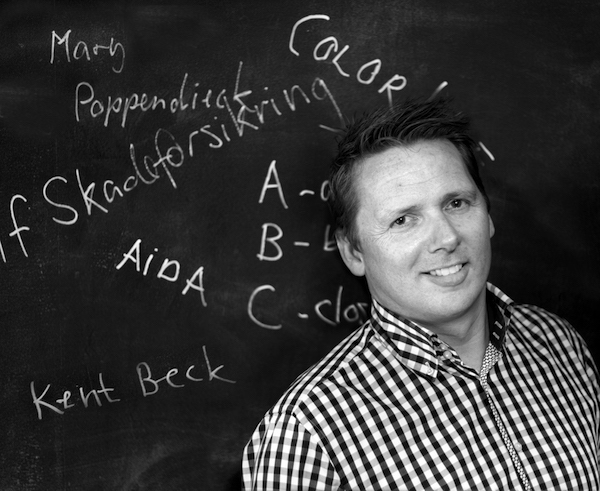 Mary
Poppendieck
COLOR
If Skadeforsikring
A -
B -
AiDA
C - clos
Kent Beck